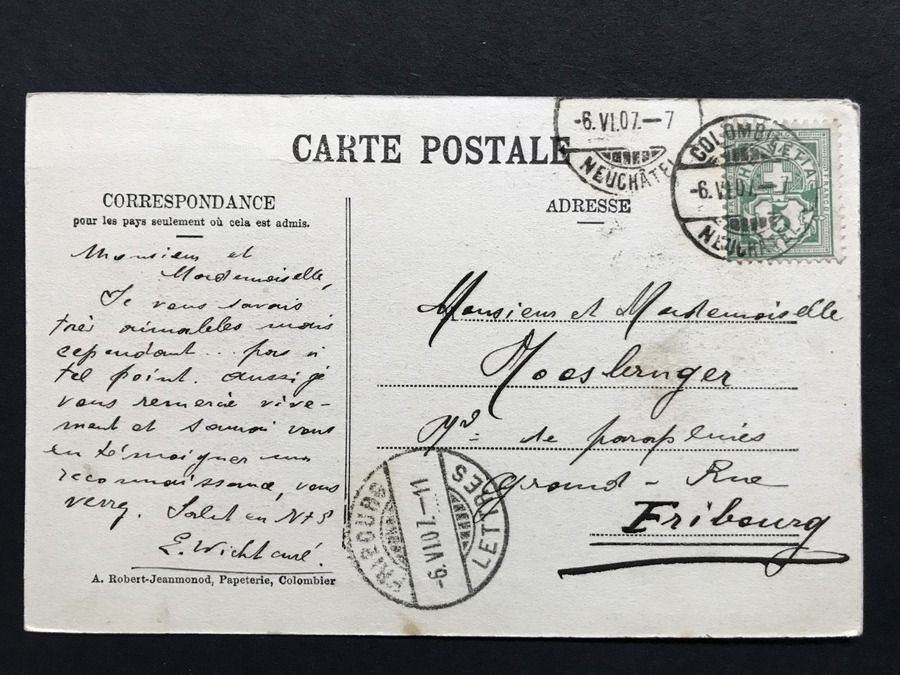 CARTE POSTALE
CORRESPONDANCE
pour les pays seulement où cela est admis.
Monsieur et
Mademoiselle,
Je vous savais
très aimables mais
cependant... pas à
tel point. Aussi je
vous remercie vive-
ment et saurai vous
en témoigner ma
reconnaissance, vous
verrez. Salut en N. S
E. Wicht curé.
A. Robert-Jeanmonod, Papeterie, Colombier
-6.VI.07.-7
NEUCHÂTEL
COLOMB
-6.VI.07.-7
NEUCHÂTEL
HELVETIA
5
ADRESSE
Monsieur et Mademoiselle
Moosbrugger
de parapluies
Grand-Rue
Fribourg
FRIBOURG
-6.VI.07.-11
LETTRES